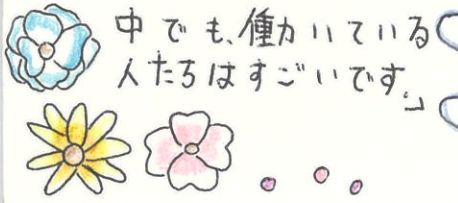 中でも、働かいている
人たちはすごいです。」